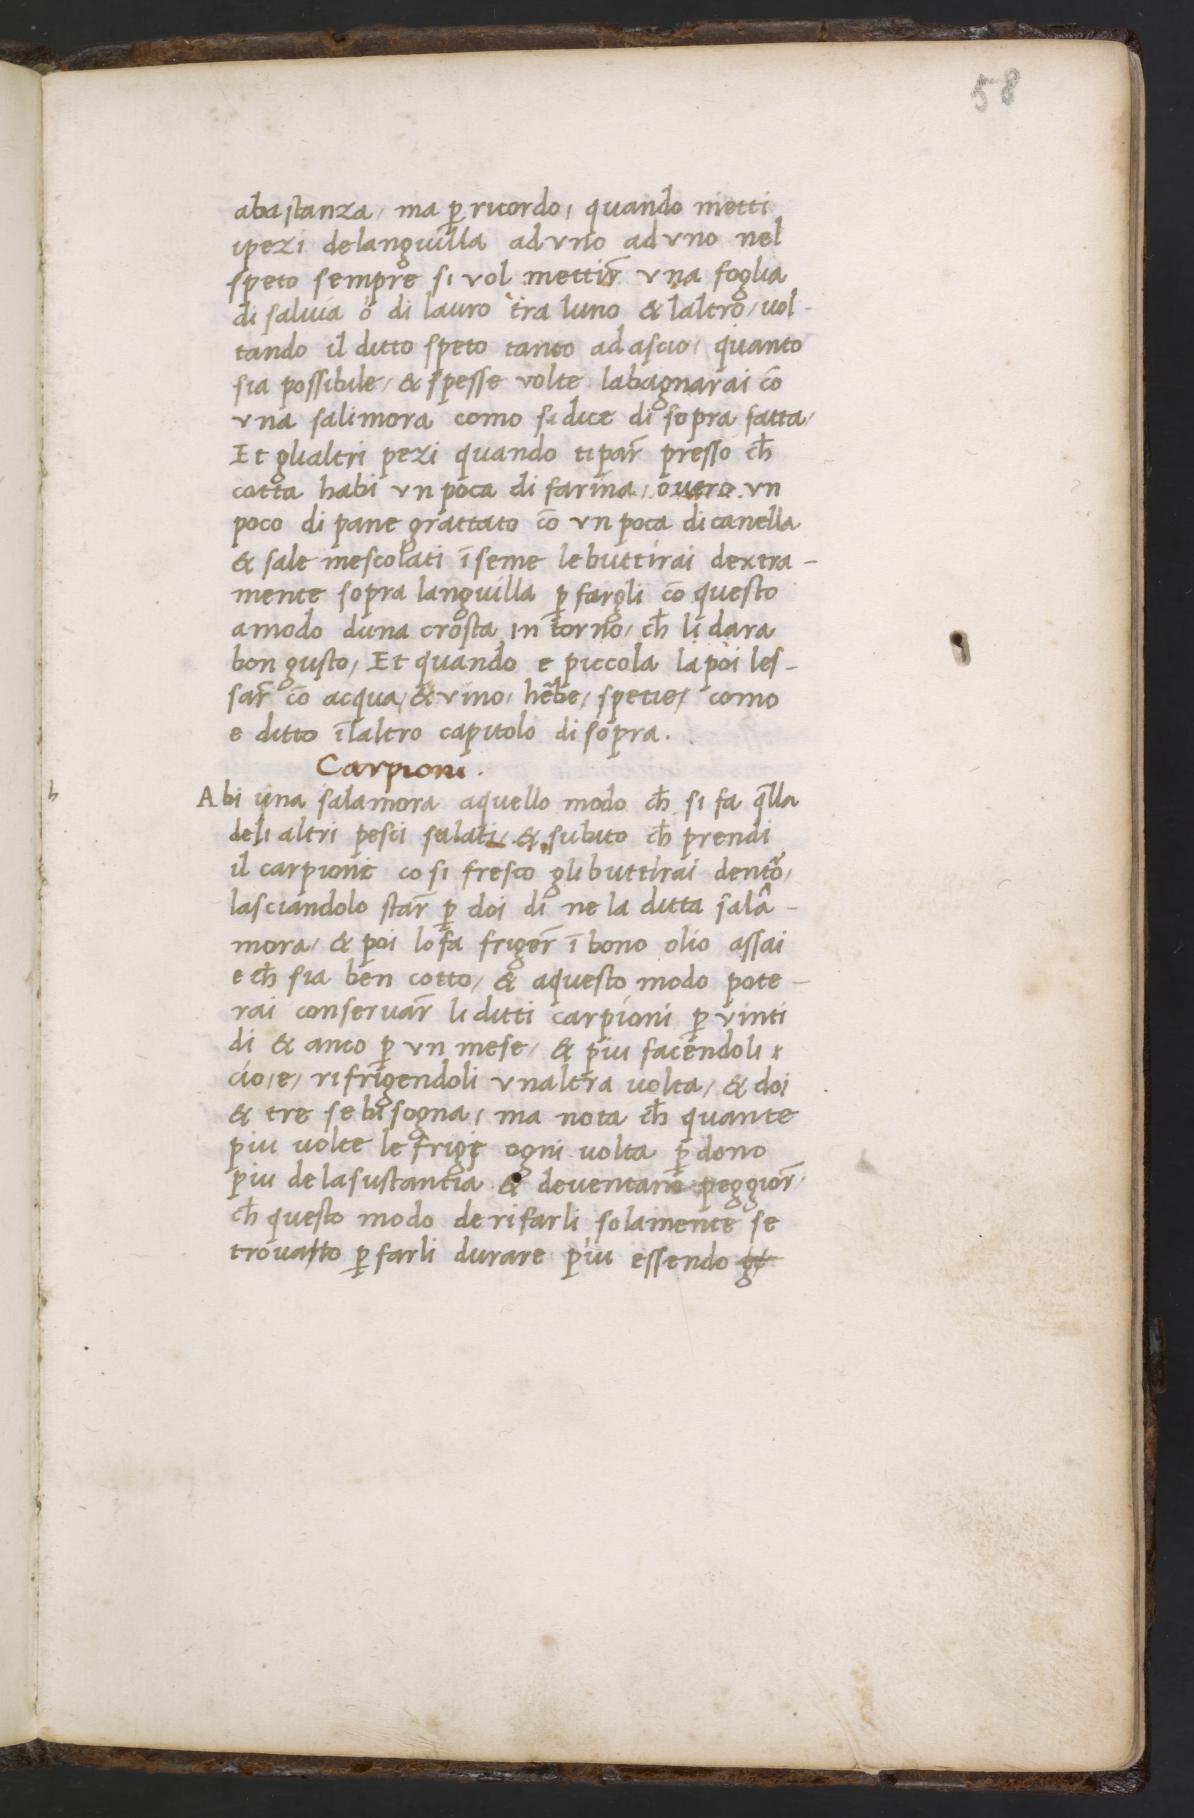 58
abastanza, ma ꝑ ricordo, quando metti
ipezi delanguilla ad vno ad vno nel
speto sempre si vol mettir̄ vna foglia
di saluia o di lauro tra luno & laltro, uol-
tando il ditto speto tanto ad ascio, quanto
sia possibile, & spesse volte labagnarai cō
vna salimora como si dice di sopra fatta,
Et glialtri pezi quando ti par̄ presso ch̄
cotta habi vn poca di farina, overo vn
poco di pane grattato cō vn poca di canella
& sale mescolati īseme lebuttirai dextra-
mente sopra languilla ꝑ fargli cō questo
amodo duna crosta in torno, ch̄ li dara
bon gusto, Et quando e piccola la poi les-
sar̄ cō acqua, & vino, hēbe, spetie, como
e ditto īlaltro capitolo di sopra.
Carpioni.
Abi una salamora aquello modo ch̄ si fa q̄lla
deli altri pesci salati, & subito ch̄ prendi
il carpione co si fresco gli buttirai dentō,
lasciandolo star̄ ꝑ doi di ne la ditta sala-
mora, & poi lo fa friger̄ ī bono olio assai
e ch̄ sia ben cotto, & aquesto modo pote-
rai conservar̄ li ditti carpioni ꝑ vinti
di & anco ꝑ vn mese, & piu facendoli
cio, e, rifrigendoli vnaltra volta, & doi
& tre se bisogna, ma nota ch̄ quante
piu volte le frige ogni volta ꝑdono
piu delasustantia & deventano peggior̄,
ch̄ questo modo de rifarli solamente se
trovatto ꝑ farli durare piu essendo